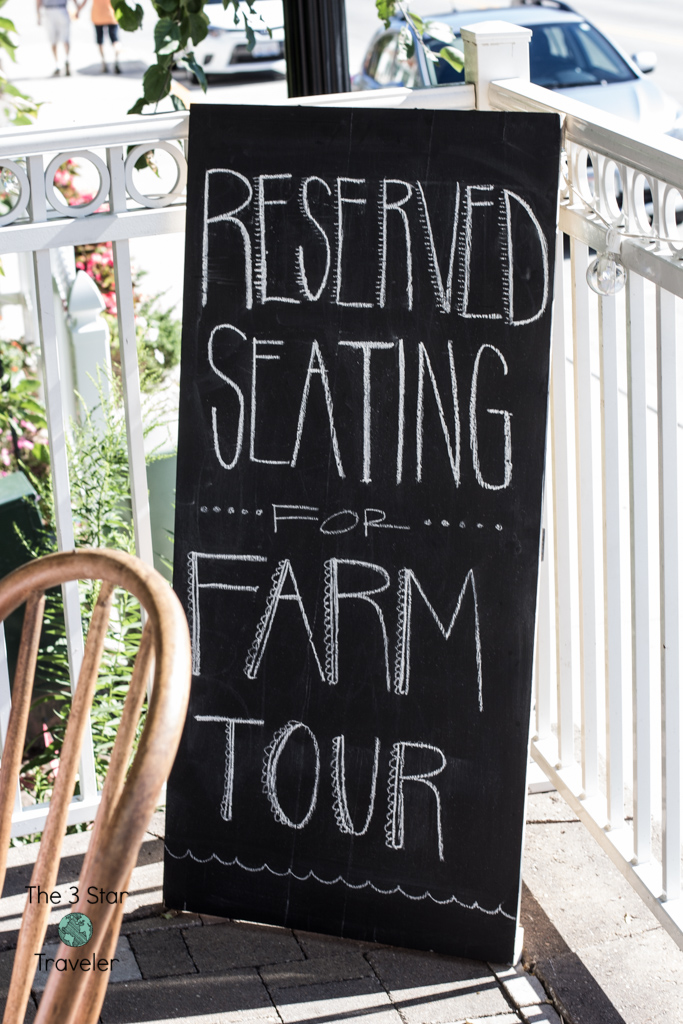 RESERVED
SEATING
FOR
FARM
TOUR
The 3 Star
Traveler